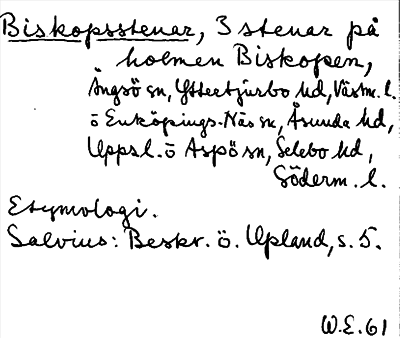 Biskopsstenar, 3 stenar på
holmen Biskopen,
Ängsö sn, Yttertjurbo hd, Västm. l.
ō Enköpings-Näs sn, Åsunda hd,
Uppsl. ō Aspö sn, Selebo hd,
Söderm. l.
Etymologi.
Salvius: Beskr. ö. Upland, s. 5.
W.E. 61